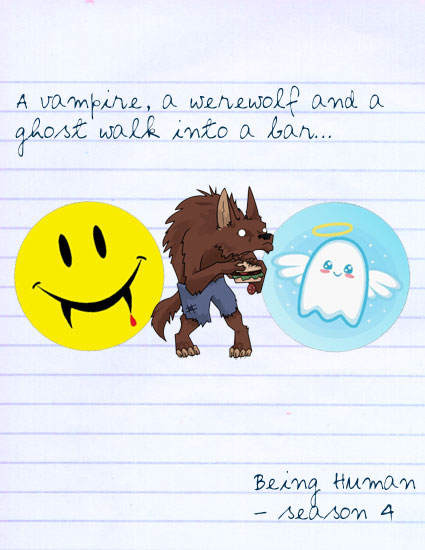 A vampire, a werewolf and a
ghost walk into a bar...
Being Human
- season 4